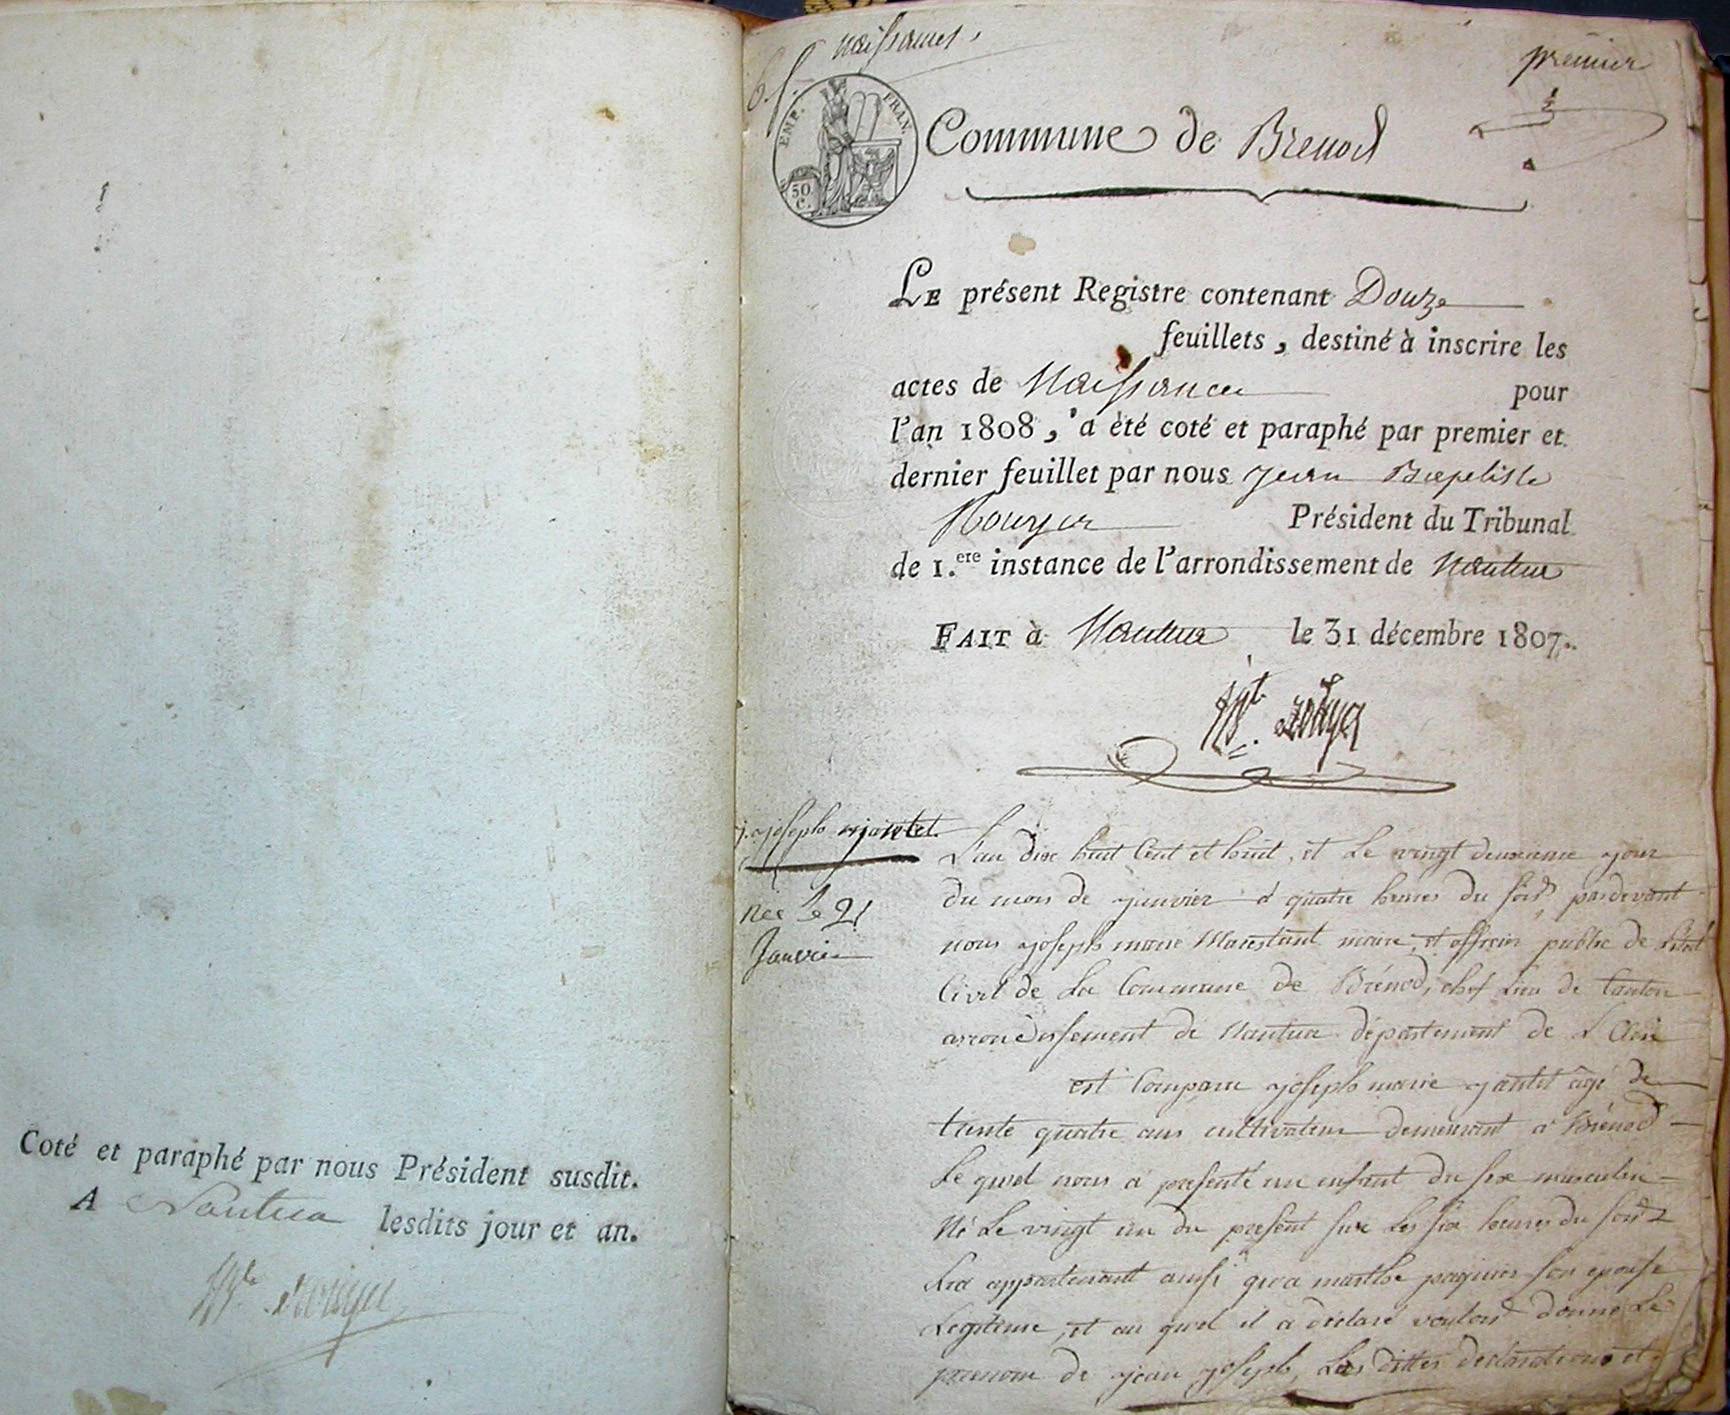 Coté et paraphé par nous Président susdit.
A Nantua lesdits jour et an.
naissances
premier
EMP. FRAN.
50 C.
Commune de Brenod
LE présent Registre contenant Douze
feuillets, destiné à inscrire les
actes de Naissance pour
l'an 1808, a été coté et paraphé par premier et
dernier feuillet par nous Jean Baptiste
Rouyer Président du Tribunal
de 1.ere instance de l'arrondissement de Nantua
FAIT à Nantua le 31 décembre 1807.
j. joseph jantet
née le 21
Janvier
L'an dix huit Cent et huit, et Le vingt deuxieme jour
du mois de janvier à quatre heures du soir, pardevant
nous joseph marie maire, et officier public de L'état
Civil de La Commune de Brénod, chef Lieu de Canton
arrondissement de Nantua département de L'Ain
est Comparu joseph marie jantet âgé de
trente quatre ans cultivateur demeurant à Brénod
Le quel nous a presenté un enfant du sexe masculin
Né Le vingt un du present sur Les six heures du soir
Lui appartenant ainsi qu'a marthe paquier son epouse
Legitime, et au quel il a déclaré vouloir donner Le
prenom de jean joseph, Les dittes declarations et